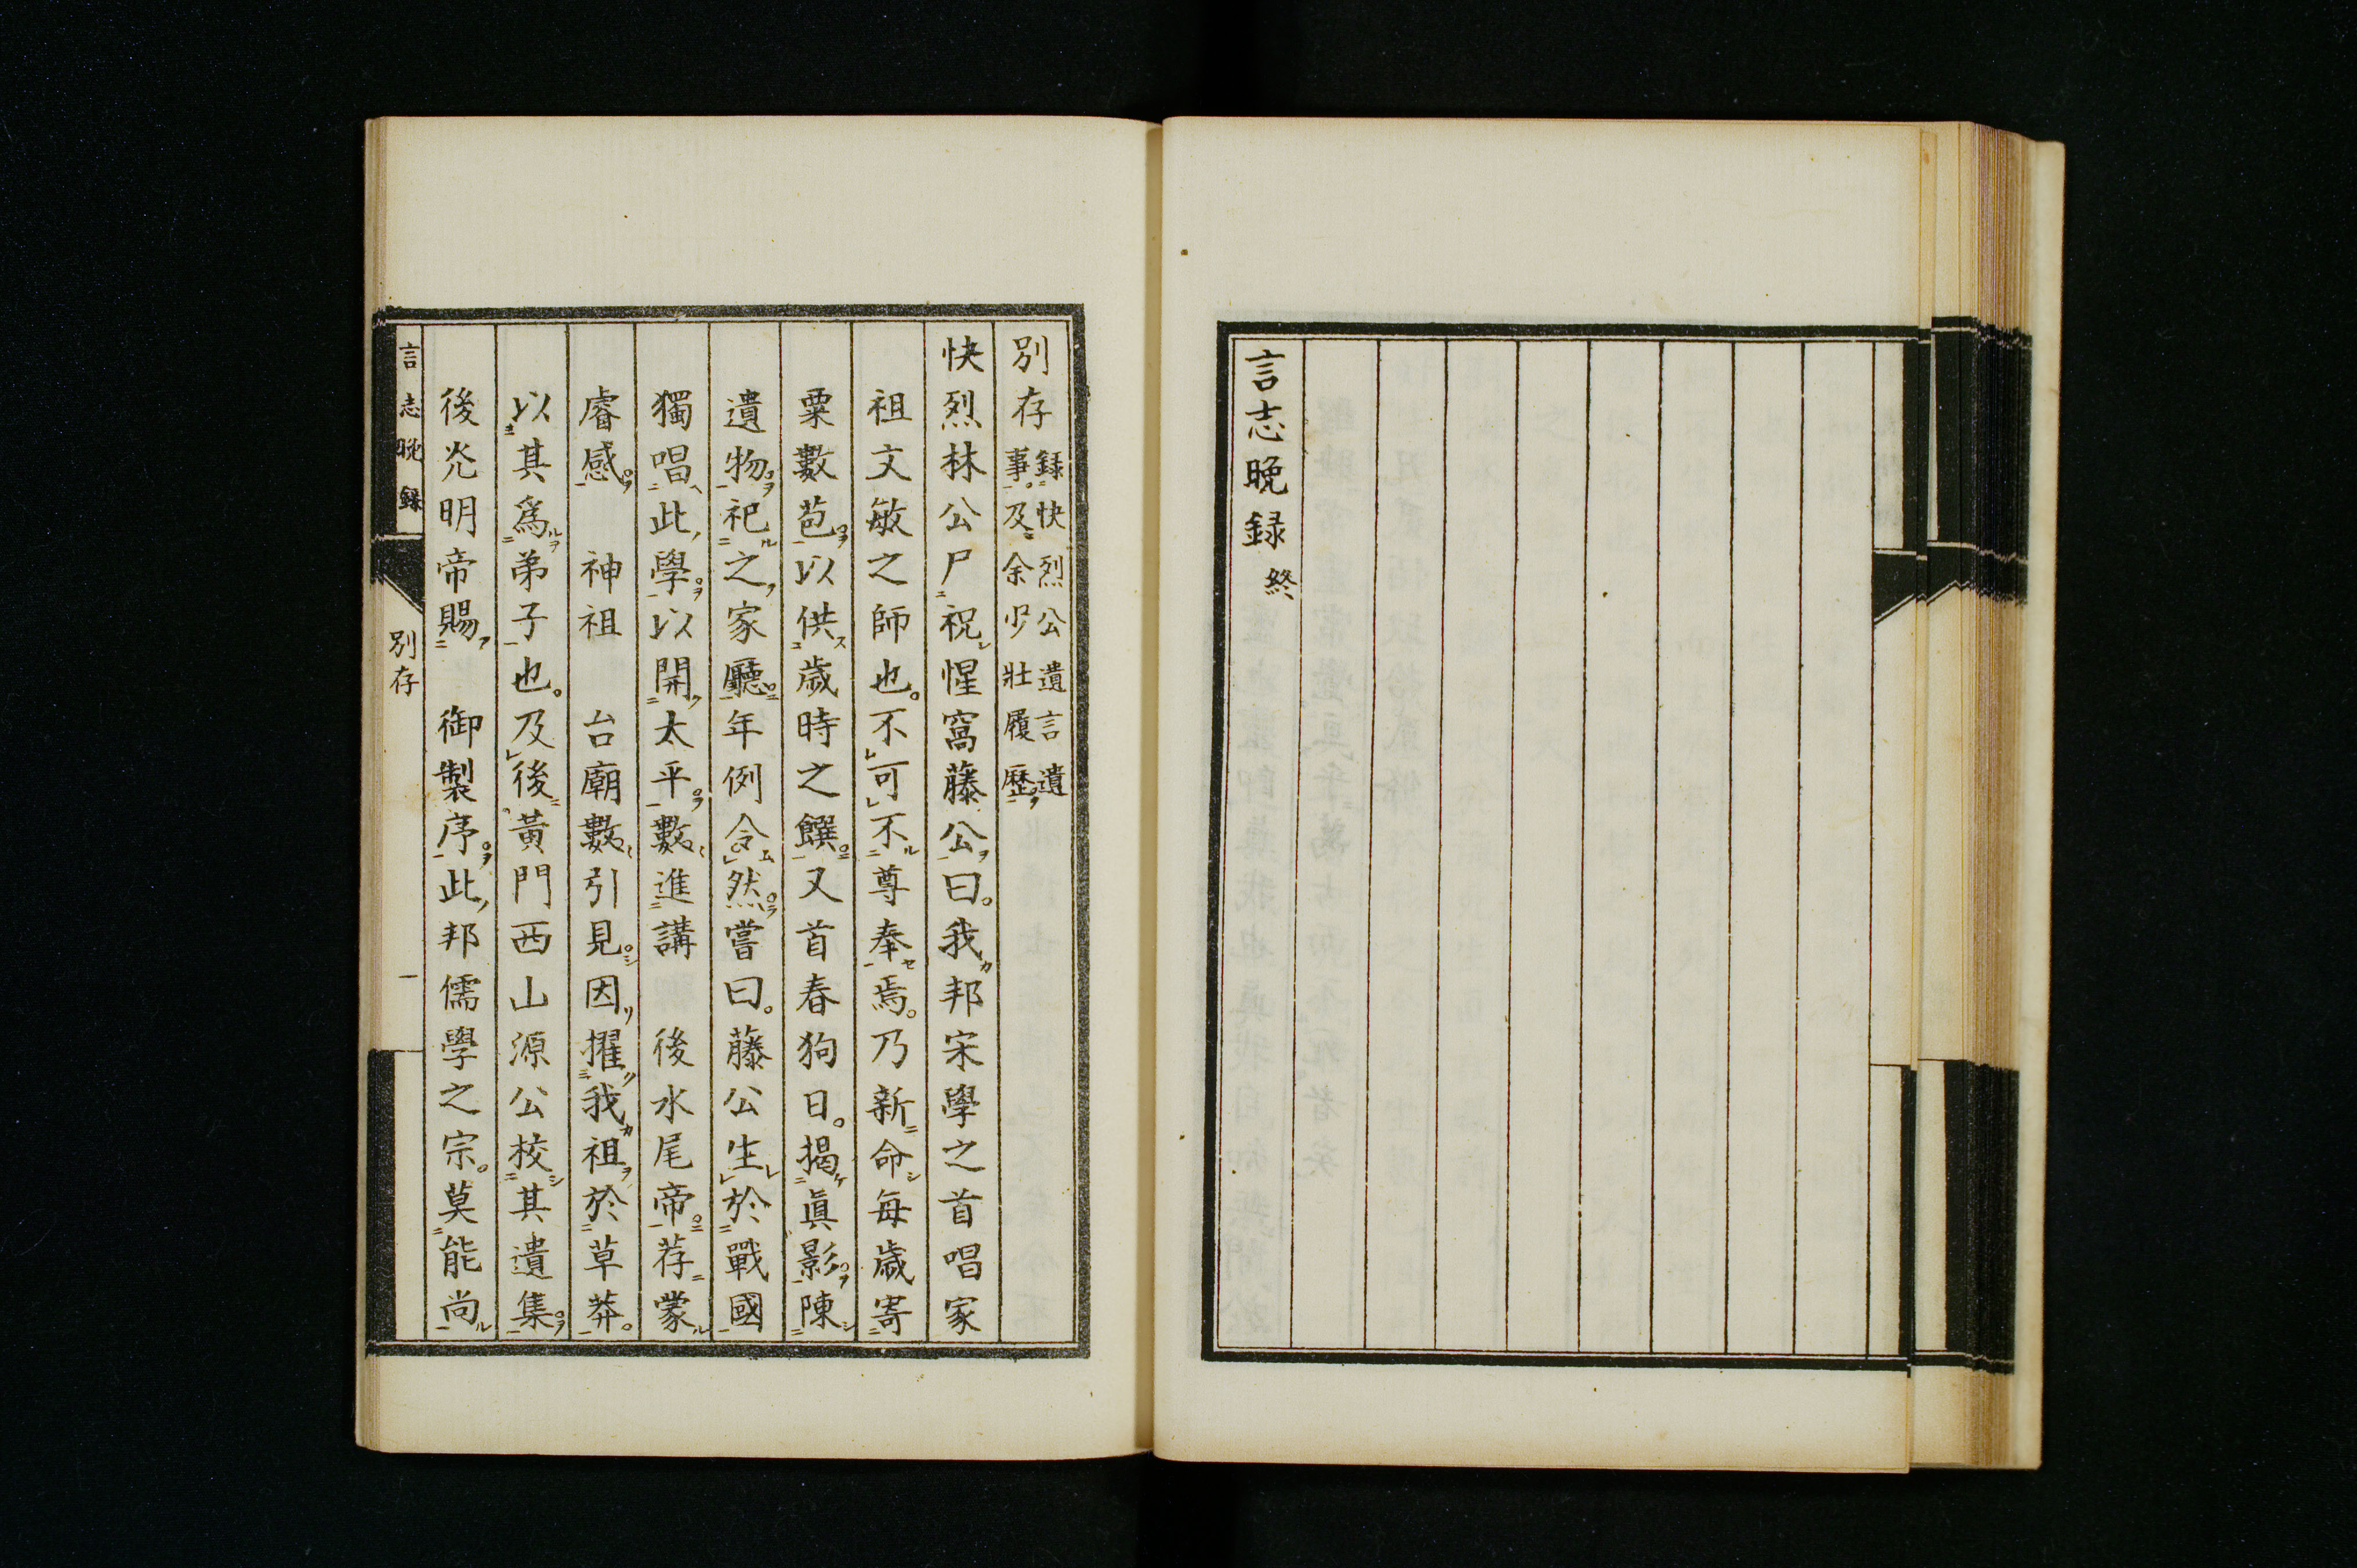 言志晩録 終
別存 録快烈公遺言遺事及余少壯履歷
快烈林公尸祝惺窩藤公曰我邦宋學之首唱家
祖文敏之師也不可不尊奉焉乃新命每歲寄
粟數苞以供歲時之饌又首春狗日揭眞影陳
遺物祀之家廳年例令然嘗曰藤公生於戰國
獨唱此學以開太平數進講 後水尾帝荐蒙
睿感 神祖 台廟數引見因擢我祖於草莽
以其爲弟子也及後黃門西山源公校其遺集
後光明帝賜 御製序此邦儒學之宗莫能尚
言志晩録 別存 一